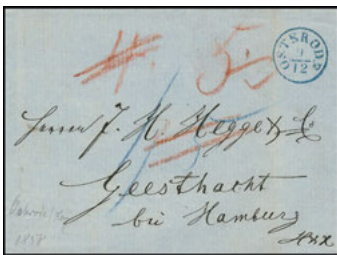 OSTSRODE
9
12
Herrn J. H. Hegge & Co
Geesthacht
bei Hamburg
1858